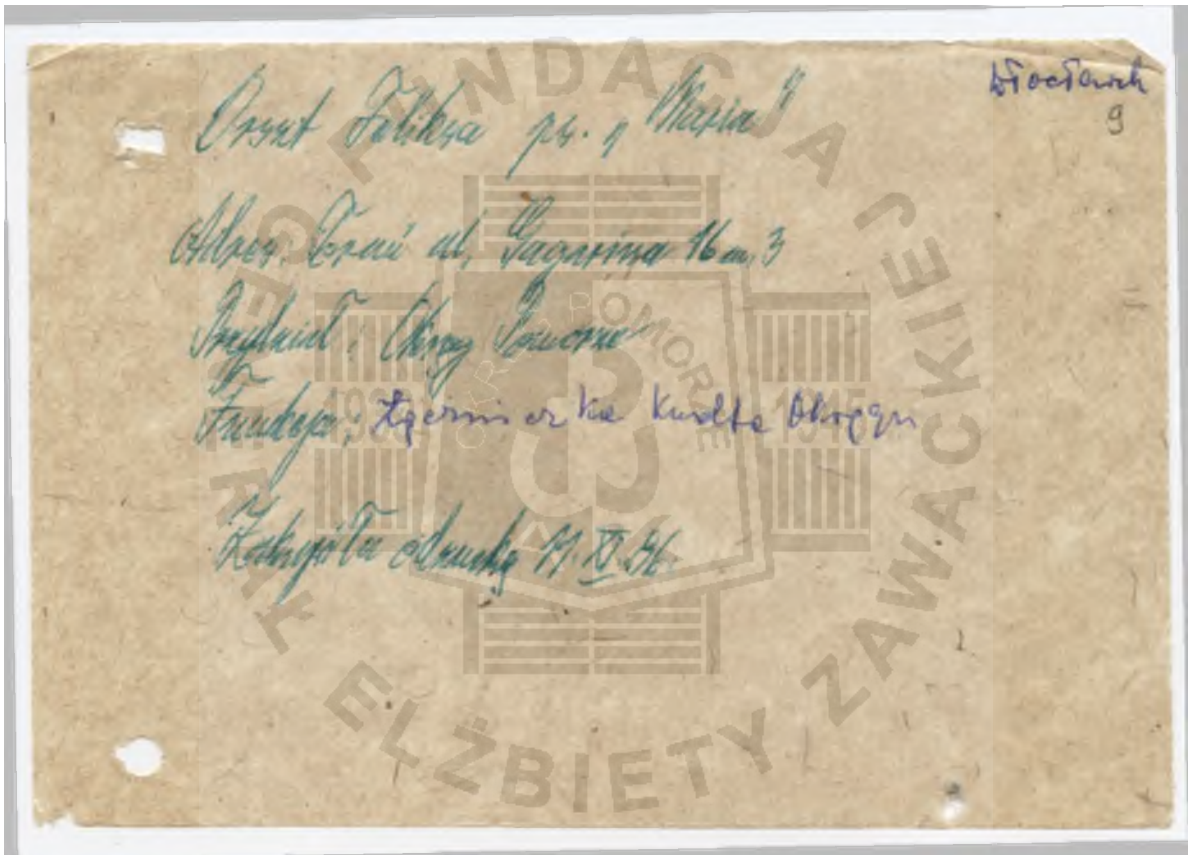 Włocławek
9
Orszt Feliksa ps. "Maria"
Adres. Toruń ul. Gagarina 16 m. 3
Przydział: Okręg Pomorze
Funkcja: Łączniczka Kmdta Okręgu
11. XI. 46.
FUNDACJA GENERAŁ ELŻBIETY ZAWACKIEJ
OKRĘG POMORZE
1945
AK